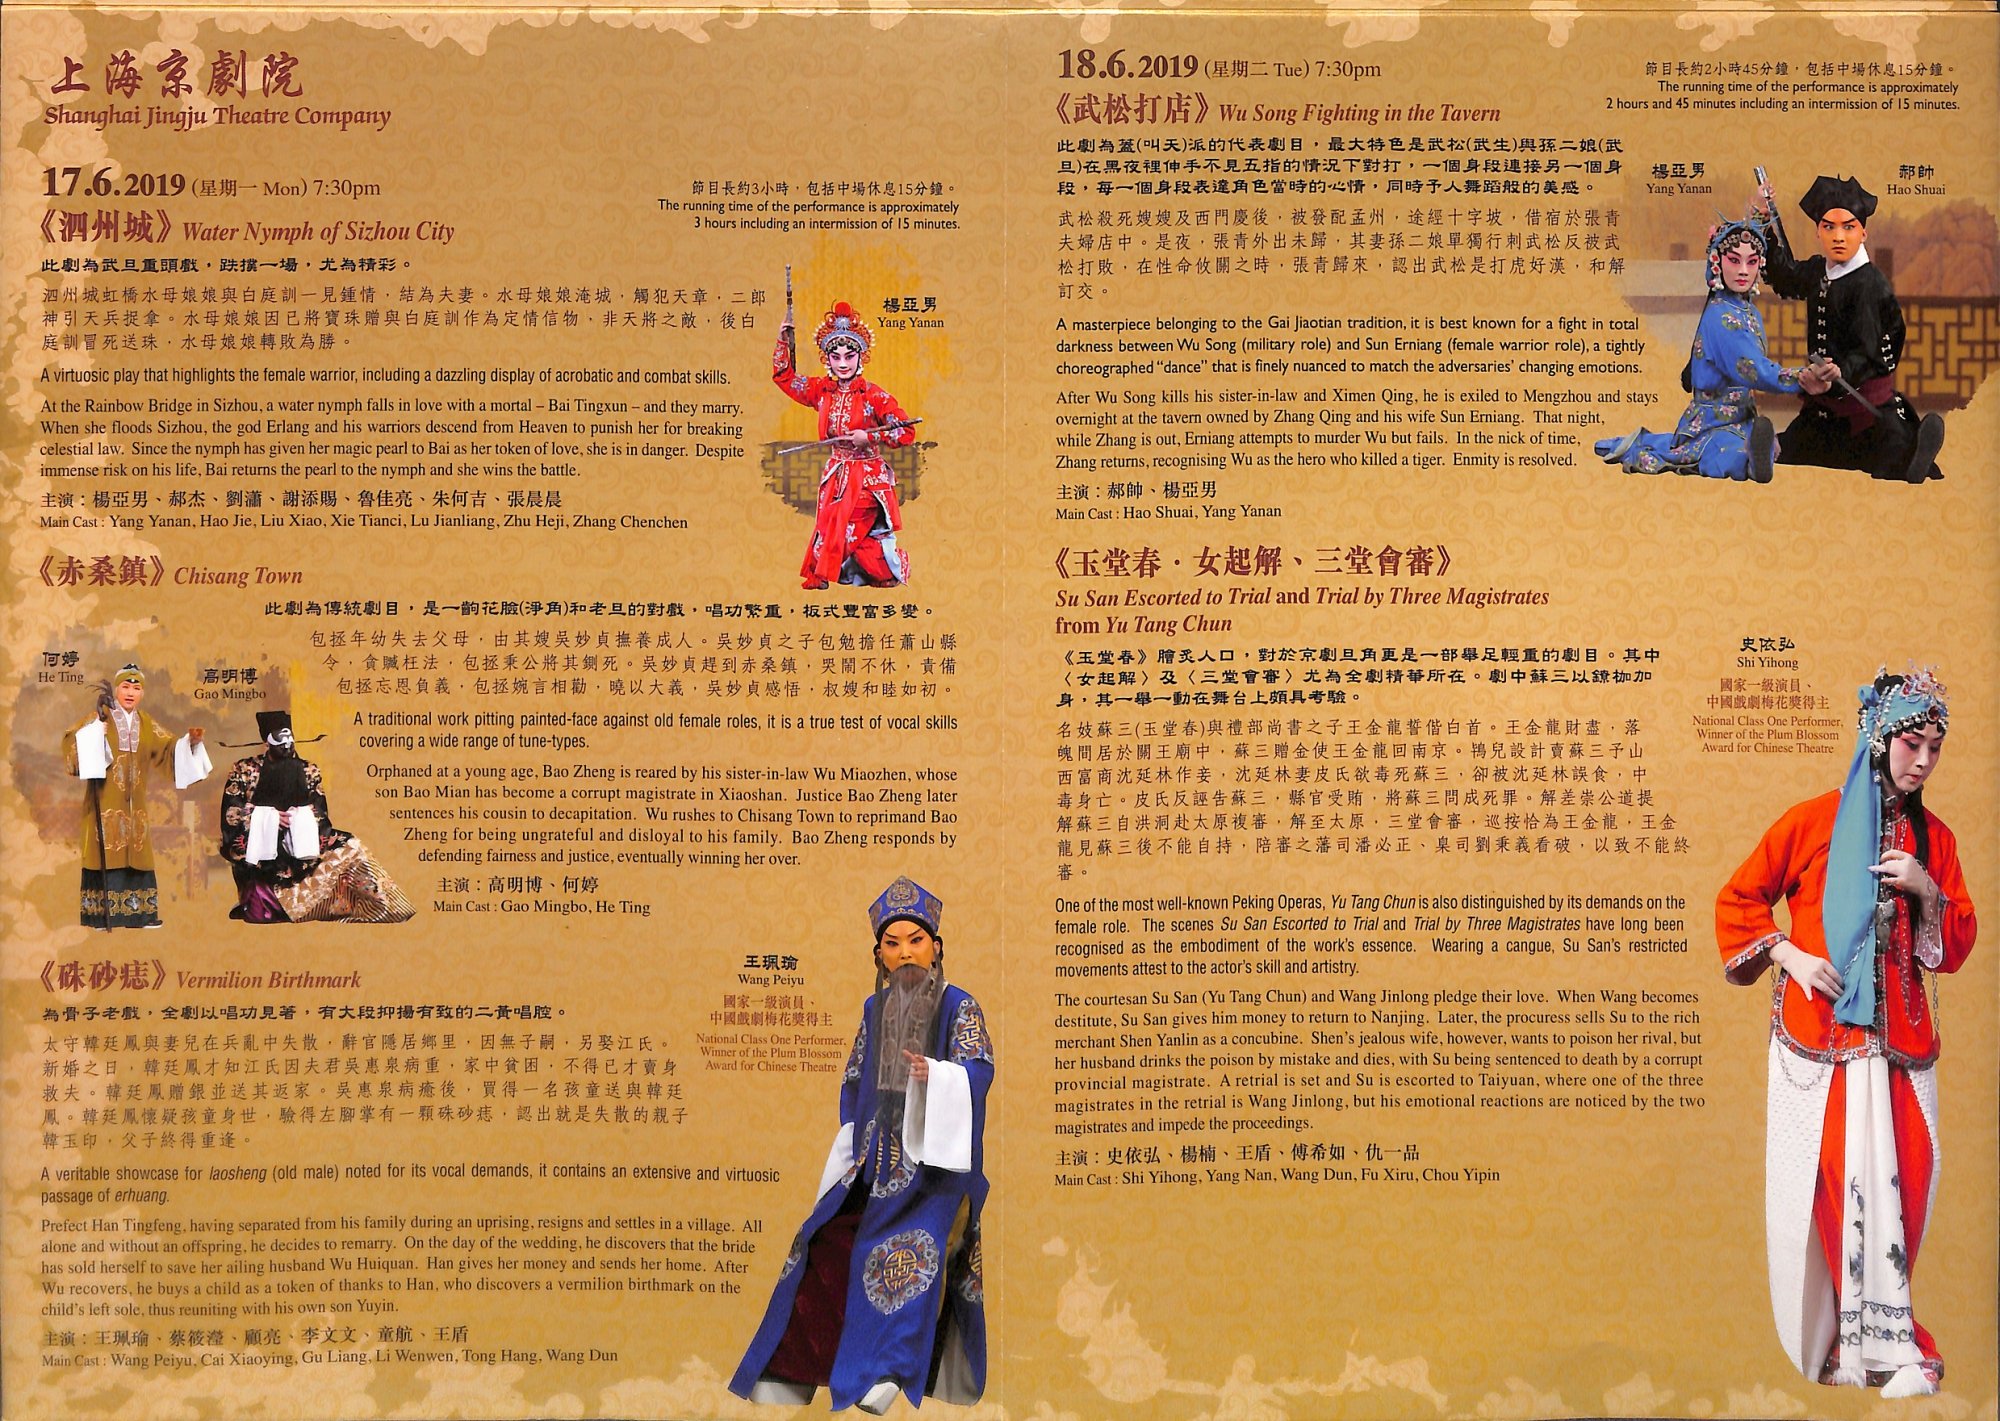 上海京劇院
Shanghai Jingju Theatre Company
17.6.2019 (星期一 Mon) 7:30pm
節目長約3小時，包括中場休息15分鐘。
The running time of the performance is approximately
3 hours including an intermission of 15 minutes.
《泗州城》 Water Nymph of Sizhou City
此劇為武旦重頭戲，跌撲一場，尤為精彩。
泗州城虹橋水母娘娘與白庭訓一見鍾情，結為夫妻。水母娘娘淹城，觸犯天章，二郎
神引天兵捉拿。水母娘娘因已將寶珠贈與白庭訓作為定情信物，非天將之敵，後白
庭訓冒死送珠，水母娘娘轉敗為勝。
楊亞男
Yang Yanan
A virtuosic play that highlights the female warrior, including a dazzling display of acrobatic and combat skills.
At the Rainbow Bridge in Sizhou, a water nymph falls in love with a mortal – Bai Tingxun – and they marry.
When she floods Sizhou, the god Erlang and his warriors descend from Heaven to punish her for breaking
celestial law. Since the nymph has given her magic pearl to Bai as her token of love, she is in danger. Despite
immense risk on his life, Bai returns the pearl to the nymph and she wins the battle.
主演：楊亞男、郝杰、劉瀟、謝添賜、魯佳亮、朱何吉、張晨晨
Main Cast : Yang Yanan, Hao Jie, Liu Xiao, Xie Tianci, Lu Jianliang, Zhu Heji, Zhang Chenchen
《赤桑鎮》 Chisang Town
此劇為傳統劇目，是一齣花臉(淨角)和老旦的對戲，唱功繁重，板式豐富多變。
何婷
He Ting
高明博
Gao Mingbo
包拯年幼失去父母，由其嫂吳妙貞撫養成人。吳妙貞之子包勉擔任蕭山縣
令，貪贓枉法，包拯秉公將其鍘死。吳妙貞趕到赤桑鎮，哭鬧不休，責備
包拯忘恩負義，包拯婉言相勸，曉以大義，吳妙貞感悟，叔嫂和睦如初。
A traditional work pitting painted-face against old female roles, it is a true test of vocal skills
covering a wide range of tune-types.
Orphaned at a young age, Bao Zheng is reared by his sister-in-law Wu Miaozhen, whose
son Bao Mian has become a corrupt magistrate in Xiaoshan. Justice Bao Zheng later
sentences his cousin to decapitation. Wu rushes to Chisang Town to reprimand Bao
Zheng for being ungrateful and disloyal to his family. Bao Zheng responds by
defending fairness and justice, eventually winning her over.
主演：高明博、何婷
Main Cast : Gao Mingbo, He Ting
《硃砂痣》 Vermilion Birthmark
為骨子老戲，全劇以唱功見著，有大段抑揚有致的二黃唱腔。
太守韓廷鳳與妻兒在兵亂中失散，辭官隱居鄉里，因無子嗣，另娶江氏。
新婚之日，韓廷鳳才知江氏因夫君吳惠泉病重，家中貧困，不得已才賣身
救夫。韓廷鳳贈銀並送其返家。吳惠泉病癒後，買得一名孩童送與韓廷
鳳。韓廷鳳懷疑孩童身世，驗得左腳掌有一顆硃砂痣，認出就是失散的親子
韓玉印，父子終得重逢。
王珮瑜
Wang Peiyu
國家一級演員、
中國戲劇梅花獎得主
National Class One Performer,
Winner of the Plum Blossom
Award for Chinese Theatre
A veritable showcase for laosheng (old male) noted for its vocal demands, it contains an extensive and virtuosic
passage of erhuang.
Prefect Han Tingfeng, having separated from his family during an uprising, resigns and settles in a village. All
alone and without an offspring, he decides to remarry. On the day of the wedding, he discovers that the bride
has sold herself to save her ailing husband Wu Huiquan. Han gives her money and sends her home. After
Wu recovers, he buys a child as a token of thanks to Han, who discovers a vermilion birthmark on the
child's left sole, thus reuniting with his own son Yuyin.
主演：王珮瑜、蔡筱瀅、顧亮、李文文、童航、王盾
Main Cast : Wang Peiyu, Cai Xiaoying, Gu Liang, Li Wenwen, Tong Hang, Wang Dun
18.6.2019 (星期二 Tue) 7:30pm
節目長約2小時45分鐘，包括中場休息15分鐘。
The running time of the performance is approximately
2 hours and 45 minutes including an intermission of 15 minutes.
《武松打店》 Wu Song Fighting in the Tavern
此劇為蓋(叫天)派的代表劇目，最大特色是武松(武生)與孫二娘(武
旦)在黑夜裡伸手不見五指的情況下對打，一個身段連接另一個身
段，每一個身段表達角色當時的心情，同時予人舞蹈般的美感。
楊亞男
Yang Yanan
郝帥
Hao Shuai
武松殺死嫂嫂及西門慶後，被發配孟州，途經十字坡，借宿於張青
夫婦店中。是夜，張青外出未歸，其妻孫二娘單獨行刺武松反被武
松打敗，在性命攸關之時，張青歸來，認出武松是打虎好漢，和解
訂交。
A masterpiece belonging to the Gai Jiaotian tradition, it is best known for a fight in total
darkness between Wu Song (military role) and Sun Erniang (female warrior role), a tightly
choreographed “dance” that is finely nuanced to match the adversaries' changing emotions.
After Wu Song kills his sister-in-law and Ximen Qing, he is exiled to Mengzhou and stays
overnight at the tavern owned by Zhang Qing and his wife Sun Erniang. That night,
while Zhang is out, Erniang attempts to murder Wu but fails. In the nick of time,
Zhang returns, recognising Wu as the hero who killed a tiger. Enmity is resolved.
主演：郝帥、楊亞男
Main Cast : Hao Shuai, Yang Yanan
《玉堂春．女起解、三堂會審》
Su San Escorted to Trial and Trial by Three Magistrates
from Yu Tang Chun
《玉堂春》膾炙人口，對於京劇旦角更是一部舉足輕重的劇目。其中
〈女起解〉及〈三堂會審〉尤為全劇精華所在。劇中蘇三以鐐枷加
身，其一舉一動在舞台上頗具考驗。
史依弘
Shi Yihong
國家一級演員、
中國戲劇梅花獎得主
National Class One Performer,
Winner of the Plum Blossom
Award for Chinese Theatre
名妓蘇三(玉堂春)與禮部尚書之子王金龍誓偕白首。王金龍財盡，落
魄間居於關王廟中，蘇三贈金使王金龍回南京。鴇兒設計賣蘇三予山
西富商沈延林作妾，沈延林妻皮氏欲毒死蘇三，卻被沈延林誤食，中
毒身亡。皮氏反誣告蘇三，縣官受賄，將蘇三問成死罪。解差崇公道提
解蘇三自洪洞赴太原複審，解至太原，三堂會審，巡按恰為王金龍，王金
龍見蘇三後不能自持，陪審之藩司潘必正、臬司劉秉義看破，以致不能終
審。
One of the most well-known Peking Operas, Yu Tang Chun is also distinguished by its demands on the
female role. The scenes Su San Escorted to Trial and Trial by Three Magistrates have long been
recognised as the embodiment of the work's essence. Wearing a cangue, Su San's restricted
movements attest to the actor's skill and artistry.
The courtesan Su San (Yu Tang Chun) and Wang Jinlong pledge their love. When Wang becomes
destitute, Su San gives him money to return to Nanjing. Later, the procuress sells Su to the rich
merchant Shen Yanlin as a concubine. Shen's jealous wife, however, wants to poison her rival, but
her husband drinks the poison by mistake and dies, with Su being sentenced to death by a corrupt
provincial magistrate. A retrial is set and Su is escorted to Taiyuan, where one of the three
magistrates in the retrial is Wang Jinlong, but his emotional reactions are noticed by the two
magistrates and impede the proceedings.
主演：史依弘、楊楠、王盾、傅希如、仇一品
Main Cast : Shi Yihong, Yang Nan, Wang Dun, Fu Xiru, Chou Yipin